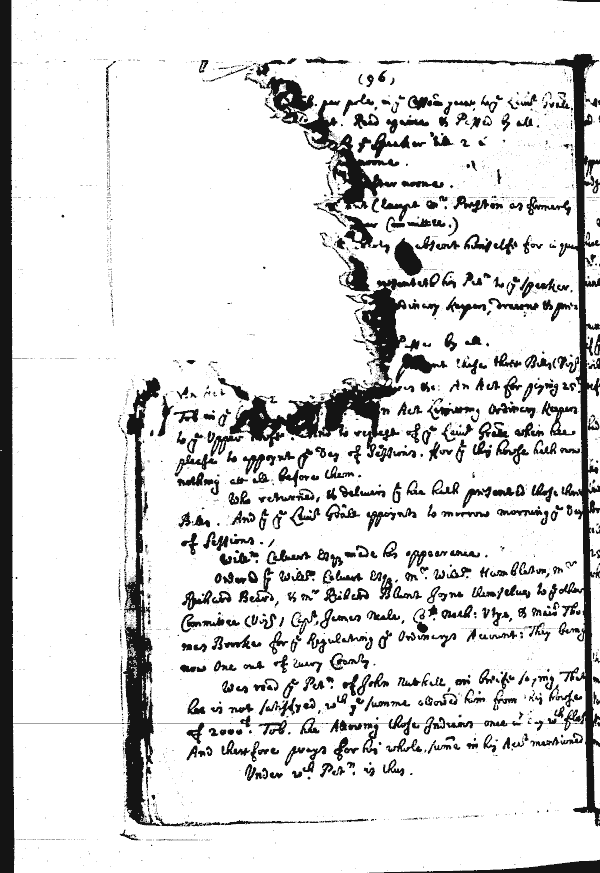 (96)
per pole, in yᵉ Comōn year to yᵉ Lieuᵗ Genāll.
Read againe & Passed by all.
yᵉ Speaker till 2 a
noone.
After noone.
(Except Mʳ. Preston as formerly
Committee.)
absent himselfe for a quar
presented his Petⁿ to yᵉ Speaker.
dinary Keepers, drawne & pre
Passed by all.
sent these three Bills (Vizᵗ
An Act &c: An Act for paying 25ˡ
Tob in yᵉ An Act Limiting Ordinary Keepers
to yᵉ Upper house. And to request of yᵉ Lieuᵗ Genāll when hee
please to appoynt yᵉ Day of Sessions. For yᵗ this house hath now
nothing att all before them.
Who returned, & delivers yᵗ hee hath presented those three
Bills. And yᵗ yᵉ Lieuᵗ Genāll appoynts to morrow morning yᵉ Day
of Sessions.
Willᵐ. Calvert Esqʳ made his appearance.
Ordered yᵗ Willᵐ. Calvert Esqʳ, Mʳ. Willᵐ. Hambleton, Mʳ
Richard Beard, & Mʳ Richard Blunt Joyne themselves to yᵉ other
Committee (Vizᵗ) Capᵗ. James Neale, Nath: Utye, & Maioʳ Tho
mas Brooke for yᵉ Regulating yᵉ Ordinarys Account: They being
now One out of every County.
Was read yᵉ Petⁿ. of John Nuthall on briefe saying That
hee is not satisfyed, wᵗʰ yᵉ summe allowed him from this howse
of 2000ˡ. Tob. hee Allowing those Indians once a day wᵗʰ flesh
And therefore prays for his whole summe in his Accᵗ mentioned
Under wᶜʰ Petⁿ. is thus.